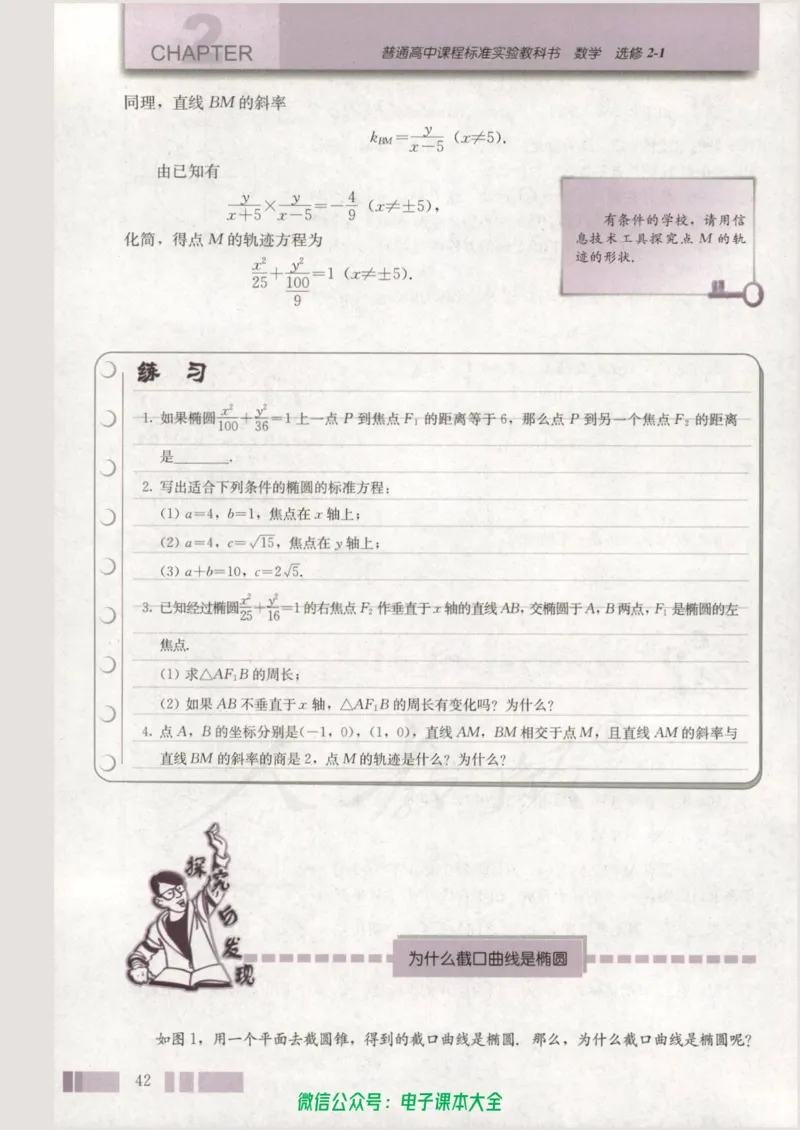 2
CHAPTER
普通高中课程标准实验教科书 数学 选修 2-1
同理，直线 BM 的斜率
k_{BM}=\frac{y}{x-5} (x≠5).
由已知有
\frac{y}{x+5}×\frac{y}{x-5}=-\frac{4}{9} (x≠±5)，
化简，得点 M 的轨迹方程为
\frac{x^2}{25}+\frac{y^2}{\frac{100}{9}}=1 (x≠±5).
有条件的学校，请用信
息技术工具探究点 M 的轨
迹的形状.
练 习
1. 如果椭圆\frac{x^2}{100}+\frac{y^2}{36}=1上一点 P 到焦点 F₁ 的距离等于 6，那么点 P 到另一个焦点 F₂ 的距离
是________.
2. 写出适合下列条件的椭圆的标准方程：
(1) a=4，b=1，焦点在 x 轴上；
(2) a=4，c=√15，焦点在 y 轴上；
(3) a+b=10，c=2√5.
3. 已知经过椭圆\frac{x^2}{25}+\frac{y^2}{16}=1的右焦点 F₂ 作垂直于 x 轴的直线 AB，交椭圆于 A，B 两点，F₁ 是椭圆的左
焦点.
(1) 求△AF₁B 的周长；
(2) 如果 AB 不垂直于 x 轴，△AF₁B 的周长有变化吗？为什么？
4. 点 A，B 的坐标分别是(-1，0)，(1，0)，直线 AM，BM 相交于点 M，且直线 AM 的斜率与
直线 BM 的斜率的商是 2，点 M 的轨迹是什么？为什么？
探究与发现
为什么截口曲线是椭圆
如图 1，用一个平面去截圆锥，得到的截口曲线是椭圆. 那么，为什么截口曲线是椭圆呢？
42
微信公众号：电子课本大全